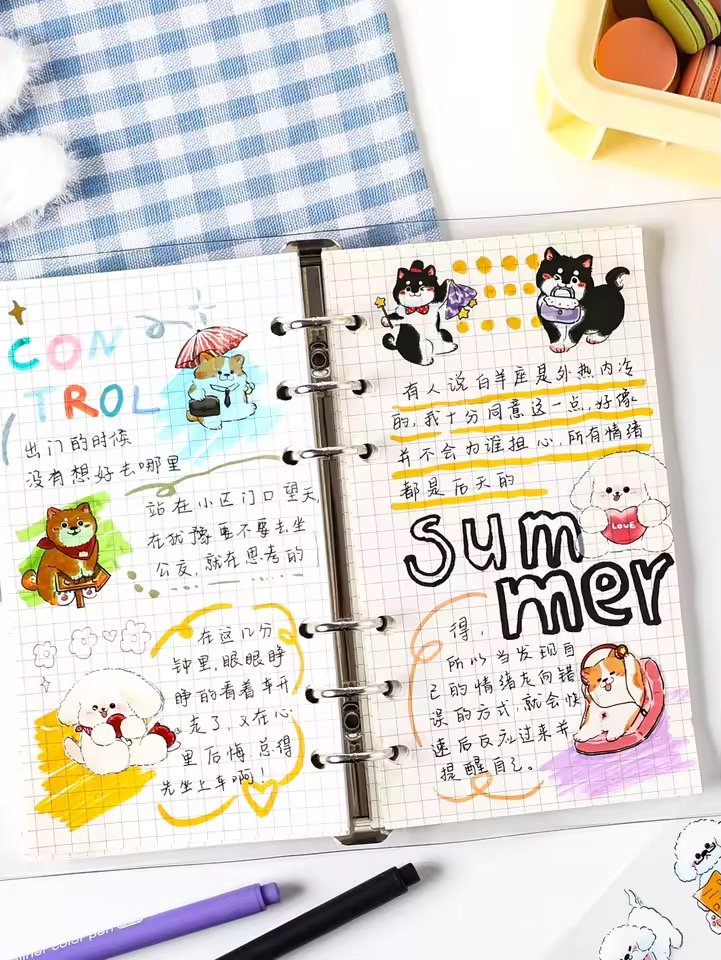 CON
TROL
出门的时候
没有想好去哪里
站在小区门口望天,
在我豫要不要去坐
公交,就在思考的
在这几分
钟里,眼眼睁
睁的看着车开
走了,又在心
里后悔,总得
先坐上车啊!
有人说白羊座是外热内冷
的,我十分同意这一点,好像
并不会为谁担心,所有情绪
都是后天的
LOVE
Sum
mer
得,
所以当发现自
己的情绪左向错
误的方式,就会快
速后反应过来并
提醒自己。
color pen